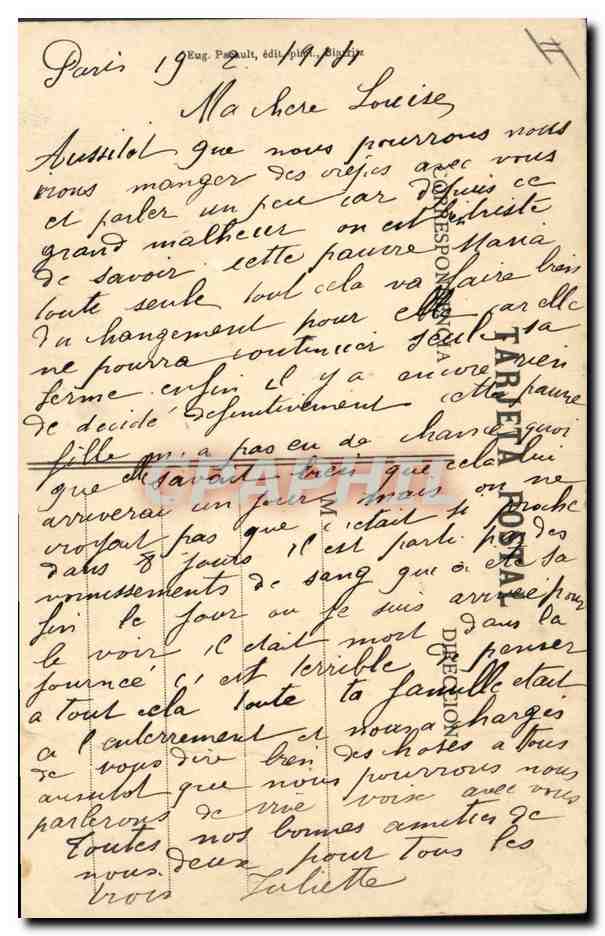 Eug. Pacault, édit. phot., Biarritz
II
Paris 19 2 1914
Ma chere Louise
Aussitot que nous pourrons nous
irons manger des crêpes avec vous
et parler un peu car depuis ce
grand malheur on est bien triste
de savoir cette pauvre Maria
toute seule tout cela va faire bien
du changement pour elle car elle
ne pourra continuer seule sa
ferme enfin il y a encore rien
de décidé definitivement cette pauvre
fille n'a pas eu de chance quoi
que savait bien que cela lui
arriverai un jour mais on ne
croyait pas que c'était si proche
dans 8 jours il est parti par des
vomissements de sang qui a été sa
fin le jour ou je suis arrivée pour
le voir il était mort dans la
journée c'est terrible a penser
a tout cela toute ta famille était
a l'enterrement et nous a chargés
de vous dire bien des choses a tous
aussitot que nous pourrons nous
parlerons de vive voix avec vous
Toutes nos bonnes amities de
nous deux pour tous les
trois Juliette
CORRESPONDENCIA
TARJETA POSTAL
DIRECCION
M
CPAPHIL